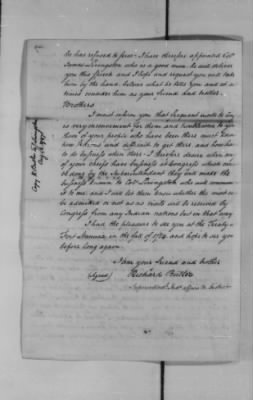 he has refused to serve. I have therefore appointed Col
James Livingston who is a good man, he will deliver
you this speech and I hope and request you will take
him by the hand, believe what he tells you and at all
times consider him as your friend and brother.
Brothers
I must inform you that frequent visits to
is very inconvenient for them and troublesome to you
those of your people who have been there must know
how it is and difficult to get there and how
to do business when there. I therefore desire when any
of your chiefs have business to Congress which can
be done by the Superintendant they will make the
business known to Col Livingston who will communicate
it to me, and I will let them know whether the must
be admitted or not as no visits will be received by
Congress from any Indian nations but in that way
I had the pleasure to see you at the Treaty
Fort in the fall of 1784 and hope to see you
before long again.
I am your friend and brother
(Signed) Richard Butler
Superintend
Copy R Butler to Livingston